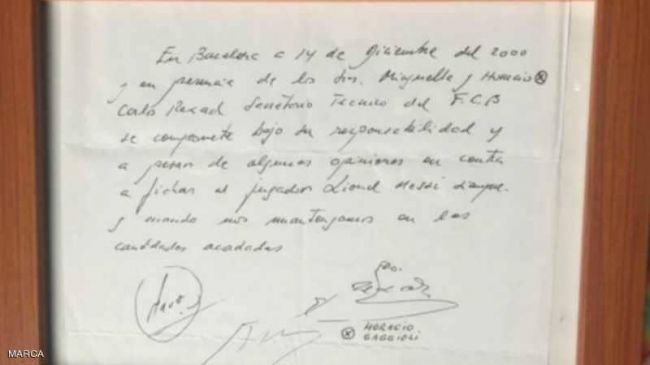 En Barcelona a 14 de Diciembre del 2000
y en presencia de los Sres. Minguella y Horacio ⊗
Carlos Rexach Secretario Tecnico del F.C.B
se compromete bajo su responsabilidad y
a pesar de algunas opiniones en contra
a fichar al jugador Lionel Messi siempre
y cuando nos mantengamos en las
cantidades acordadas
Fdo.
⊗ HORACIO
GAGGIOLI
MARCA